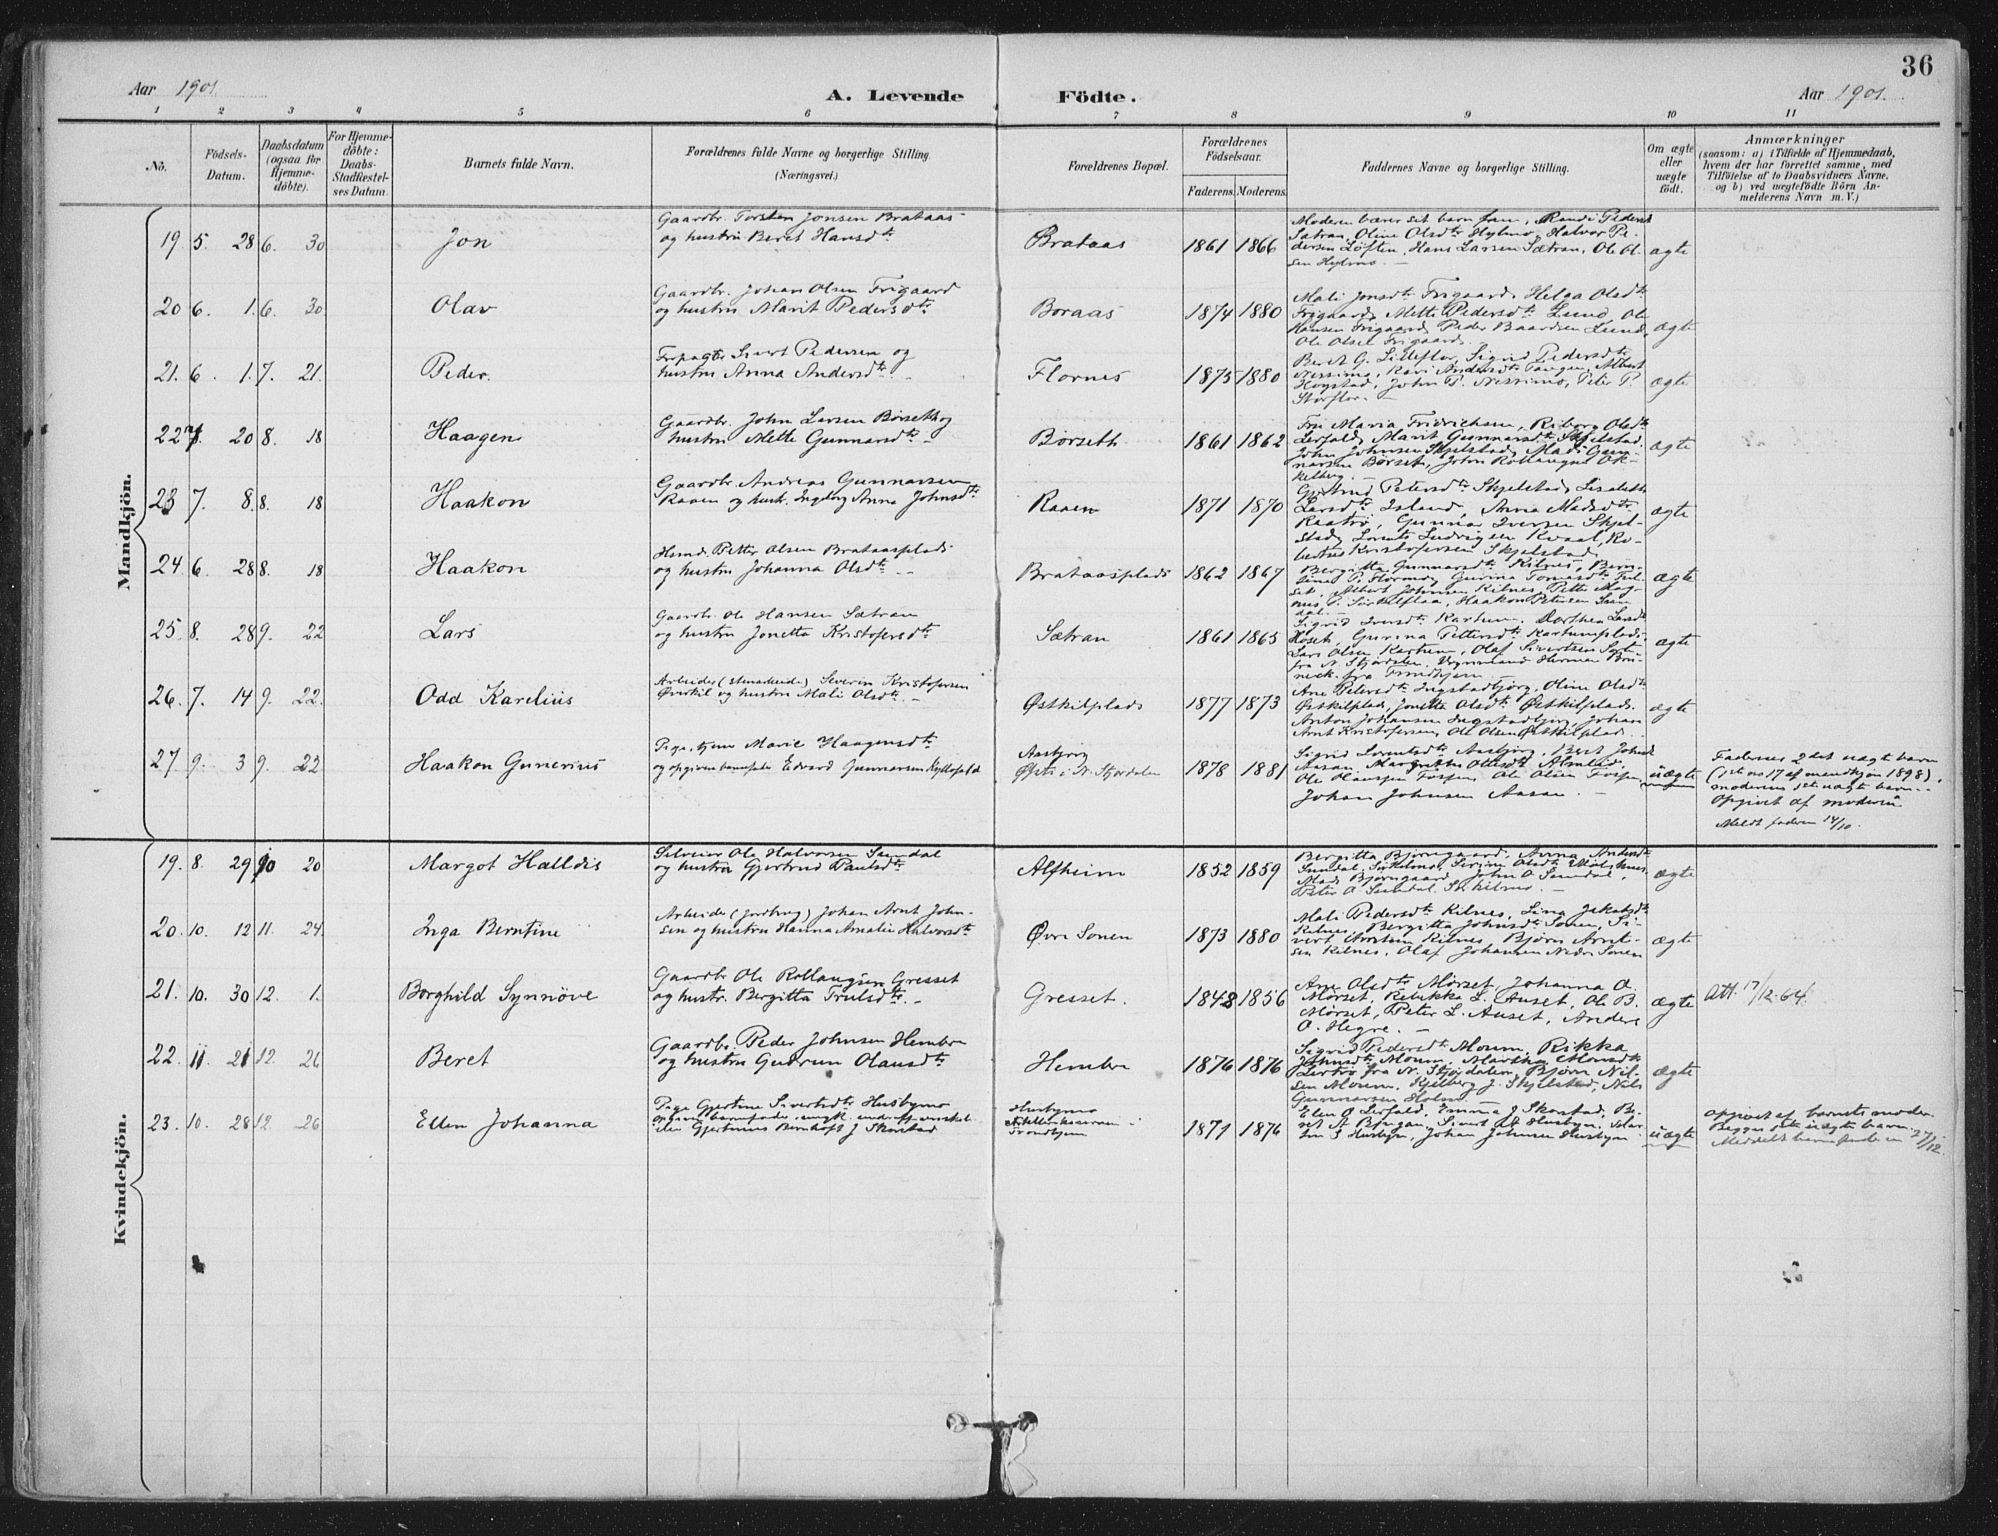 36
Aar 1901.
A. Levende Födte.
Aar 1901.
1 2 3 4 5 6 7 8 9 10 11
No.
Födsels-Datum.
Daabsdatum (ogsaa for Hjemme-döbte).
For Hjemme-döbte: Daabs-Stadfæstel-ses Datum.
Barnets fulde Navn.
Forældrenes fulde Navne og borgerlige Stilling.
(Næringsvei.)
Forældrenes Bopæl.
Forældrenes Födselsaar.
Faderens. Moderens.
Faddernes Navne og borgerlige Stilling.
Om ægte eller uægte födt.
Anmærkninger
(saasom: a) i Tilfælde af Hjemmedaab, hvem der har forrettet samme, med Tilföielse af to Daabsvidners Navne, og b) ved uægtefödte Börn An-melderens Navn m. V.)
Mandkjön.
19 5 28 6. 30 Jon
Gaardbr. Torsten Jonsen Brataas
og hustru Beret Hansdtr
Brataas 1861 1866
Moderen bærer set barn frem, Randi Pedersdtr
Sætran, Oline Olsdtr Hylmo, Halvor Pe-
dersen Løften, Hans Larsen Sætran, Ole Ol-
sen Hylmo. —
ægte
20 6. 1. 6. 30 Olav
Gaardbr. Johan Olsen Frigaard
og hustru Marit Pedersdtr
Boraas 1874 1880
Mali Jonsdtr Frigaard, Helga Olsdtr
Frigaard, Mette Pedersdtr Lund, Ole
Hansen Frigaard, Peder Baardsen Lund,
Ole Olsen Frigaard.
ægte
21. 6. 1. 7. 21. Peder.
Forpagtr Sivert Pedersen og
hustru Anna Andersdtr.
Flornes 1875 1880
Beret G. Litleflor, Sigrid Pedersdtr
Nessimo, Kari Andersdtr Tangen, Albert
Hogstad, John P. Nessimo, Peter P.
Storflor. —
ægte
22 7. 20 8. 18 Haagen
Gaardbr. John Larsen Børseth og
hustru Mette Gunnarsdtr
Børseth 1861 1862
Fru Maria Fridrichsen, Reborg Olsdtr
Lerfald, Marit Gunnarsdtr Skjelstad,
John Johnsen Skjelstad, Mads Gun-
narsen Børset, John Rollaugsen Ok-
kelberg. —
ægte
23 7. 8. 8. 18 Haakon
Gaardbr. Andreas Gunnarsen
Raaen og hust. Ingeborg Anna Johnsdtr
Raaen 1871 1870
Gjertrud Petersdtr Skjelstad, Lisabeth
Larsdtr Island, Anna Madsdtr
Raatrø, Gunnar Iversen Skjel-
stad, Lorents Ludvigsen Kvaal, Ro-
bertus Kristofersen Skjelstad.
ægte
24. 6. 28 8. 18 Haakon
Husmd. Petter Olsen Brataasplads
og hustru Johanna Olsdtr
Brataasplads 1862 1867
Bergitta Gunnarsdtr Kilnes, Bern-
tina P. Flormo, Gurina Tomasdtr Ful-
sek, Albert Johnsen Kilnes, Petter Mag-
nus P. Sirkelflaa, Haakon Petersen Sun-
dal. —
ægte
25. 8. 28 9. 22 Lars
Gaardb. Ole Hansen Sætran
og hustru Jonetta Kristofersdtr
Sætran 1861 1865
Sigrid Iversdtr Kartum, Dorthea Larsdtr
Høset, Gurina Pettersdtr Kartumplads,
Lars Olsen Kartum, Olaf Sivertsen
fra N. Stjørdalen, Herman Bru-
neck fra Trondhjem
ægte
26. 7. 14 9. 22. Odd Karelius
Arbeider (stenarbeide) Severin Kristofersen
Østkil og hustru Mali Olsdtr. —
Østkilplads 1877 1873
Ane Petersdtr Ingstadbjørg, Oline Olsdtr
Østkilplads, Jonetta Olsdtr Østkilplads
Anton Johansen Ingstadbjørg, Johan
Arnt Kristofersen, Ole Olsen Østkilplad.
ægte
27. 9. 3 9. 22 Haakon Gunerius
Pige, tjen Marie Haagensdtr
og opgiven barnefader Edvard Gunnarsen Kyllofald
Aasbjørg
i N. Stjørdalen 1878 1881
Sigrid Lorentsdtr Aasbjørg, Beret Johnsdtr
Aasan, Olausdtr Almlid,
Ole Olaussen Forsen, Ole Olsen Forsen,
Johan Johnsen Aasan. —
uægte
Faderens 2det uægt barn
(1ste no 17 af mandkjøn 1898),
moderens 1ste uægt barn.
Opgivet af moderen
Meldt faderen 14/10.
Kvindekjön.
19. 8. 29 10 20 Margot Halldis
Ole Halvorsen Sundal
og hustru Gjertrud Paulsdtr
Alfheim 1852 1859
Bergitta Bjørngaard, Anna Andersdtr
Sundal, Serine Olsdtr
Mads Bjørngaard, John O. Sundal,
Peter O. Sundal. —
ægte
20. 10. 12 11. 24. Inga Berntine
Arbeider (jordbrug) Johan Arnt John-
sen og hustru Hanna Amalie Halvorsdtr
Øvre Sonen 1873 1880
Mali Pedersdtr Kilnes, Lina Jakobsdtr
Kilnes, Bergitta Johnsdtr Sonen, Si-
vert Arntsen Kilnes, Bjørn Arnt-
sen Kilnes, Olaf Johansen Nedre Sonen
ægte
21. 10. 30 12. 1. Borghild Synnöve
Gaardbr Ole Rollaugsen Gresset
og hustr. Bergitta Trulsdtr. —
Gresset. 1848 1856
Ane Olsdtr Mørset, Johanna O.
Mørset, Rebekka L. Auset, Ole B.
Mørset, Peter L. Auset, Anders
O. Hegre. —
ægte
Att. 17/12-64.
22. 11 21 12. 26 Beret
Gaardbr. Peder Johnsen Hembre
og hustru Gudrun Olausdtr
Hembre 1876 1876
Sigrid Pedersdtr Moum, Rikka
Johnsdtr Moum, Martha Monsdtr
Lertrø fra N. Stjørdalen, Bjørn Nil-
sen Moum, Kjelberg J. Skjelstad, Nils
Gunnarsen Holm.
ægte
23. 10. 28 12. 26 Ellen Johanna
Pige Gjertine Sivertsdtr Husbymo
opgiven barnefader: ungk. underoff.
Gjertinius Bernhoft J. Skorstad
Husbymo
Artillerikasernen
Trondhjem 1871 1876
Elen O. Lerfald, Emma J. Skorstad, Be-
ret A. Bjugan, Sivert A. Husbyn, Mar-
tin S. Husbyn, Johan Johnsen Husbyn
uægte
opgivet af barnets moder.
Begges 1ste uægte barn.
Meddelt barnefaderen 27/12.